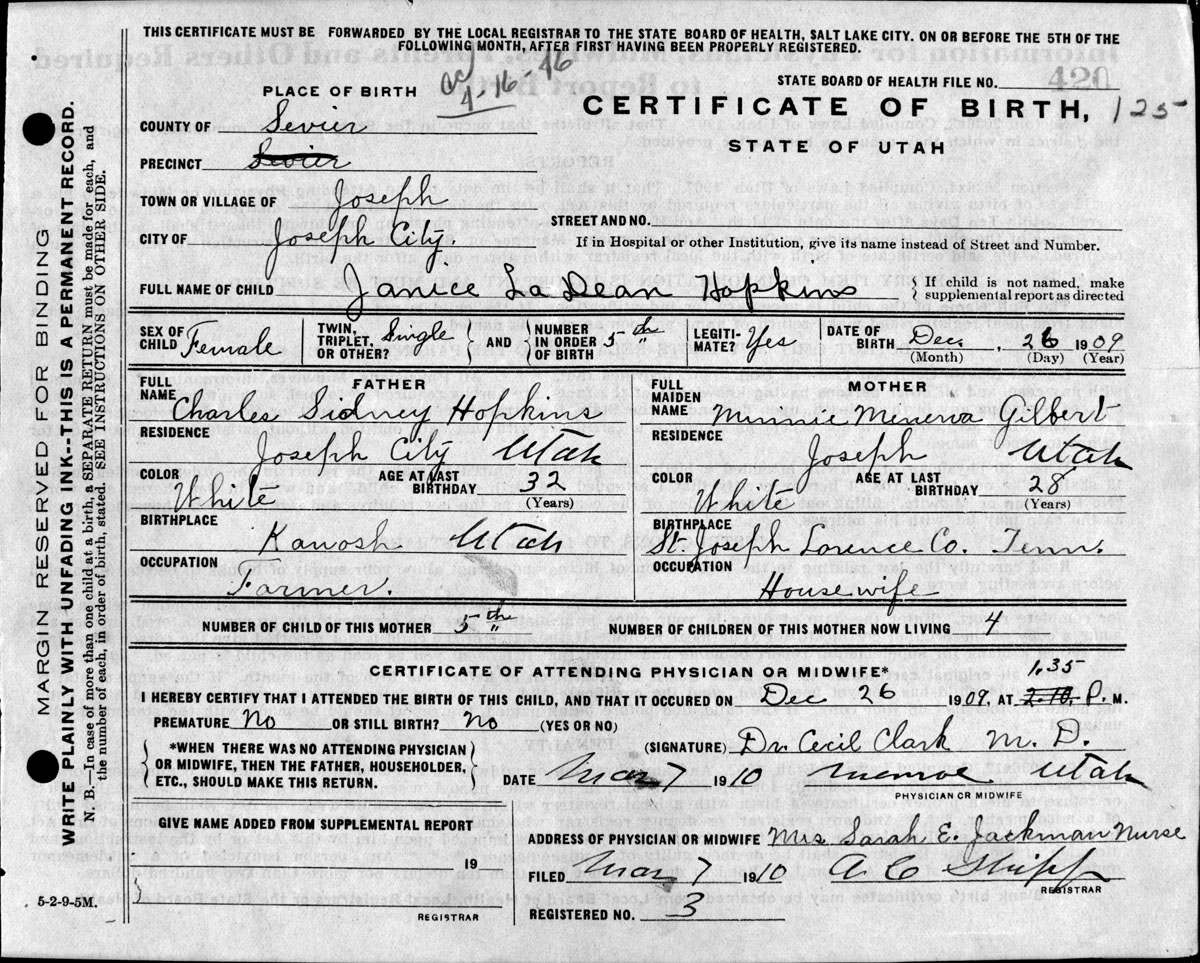 THIS CERTIFICATE MUST BE FORWARDED BY THE LOCAL REGISTRAR TO THE STATE BOARD OF HEALTH, SALT LAKE CITY. ON OR BEFORE THE 5TH OF THE
FOLLOWING MONTH, AFTER FIRST HAVING BEEN PROPERLY REGISTERED.
4-16-46
STATE BOARD OF HEALTH FILE NO. 420
PLACE OF BIRTH
CERTIFICATE OF BIRTH, 125
STATE OF UTAH
COUNTY OF Sevier
PRECINCT Sevier
TOWN OR VILLAGE OF Joseph
STREET AND NO.
CITY OF Joseph City.
If in Hospital or other Institution, give its name instead of Street and Number.
FULL NAME OF CHILD Janice La Dean Hopkins
If child is not named, make
supplemental report as directed
SEX OF CHILD Female
TWIN, TRIPLET, OR OTHER? Single AND NUMBER IN ORDER OF BIRTH 5th
LEGITI-MATE? Yes
DATE OF BIRTH Dec. 26 1909
(Month) (Day) (Year)
FATHER
FULL NAME Charles Sidney Hopkins
RESIDENCE Joseph City Utah
COLOR White AGE AT LAST BIRTHDAY 32
(Years)
BIRTHPLACE Kanosh Utah
OCCUPATION Farmer.
MOTHER
FULL MAIDEN NAME Minnie Menerva Gilbert
RESIDENCE Joseph Utah
COLOR White AGE AT LAST BIRTHDAY 28
(Years)
BIRTHPLACE St. Joseph Lorence Co. Tenn.
OCCUPATION Housewife
NUMBER OF CHILD OF THIS MOTHER 5th
NUMBER OF CHILDREN OF THIS MOTHER NOW LIVING 4
CERTIFICATE OF ATTENDING PHYSICIAN OR MIDWIFE*
1.35
I HEREBY CERTIFY THAT I ATTENDED THE BIRTH OF THIS CHILD, AND THAT IT OCCURED ON Dec 26 1909, AT 2.10, P. M.
PREMATURE No OR STILL BIRTH? No (YES OR NO)
*WHEN THERE WAS NO ATTENDING PHYSICIAN
OR MIDWIFE, THEN THE FATHER, HOUSEHOLDER,
ETC., SHOULD MAKE THIS RETURN.
(SIGNATURE) Dr. Cecil Clark M. D.
DATE Mar 7 1910 Monroe Utah
PHYSICIAN OR MIDWIFE
GIVE NAME ADDED FROM SUPPLEMENTAL REPORT
19
REGISTRAR
ADDRESS OF PHYSICIAN OR MIDWIFE Mrs Sarah E. Jackman Nurse
FILED Mar 7 1910 A C Shipp
REGISTRAR
REGISTERED NO. 3
5-2-9-5M.
MARGIN RESERVED FOR BINDING
WRITE PLAINLY WITH UNFADING INK--THIS IS A PERMANENT RECORD.
N. B.—In case of more than one child at a birth, a SEPARATE RETURN must be made for each, and
the number of each, in order of birth, stated. SEE INSTRUCTIONS ON OTHER SIDE.